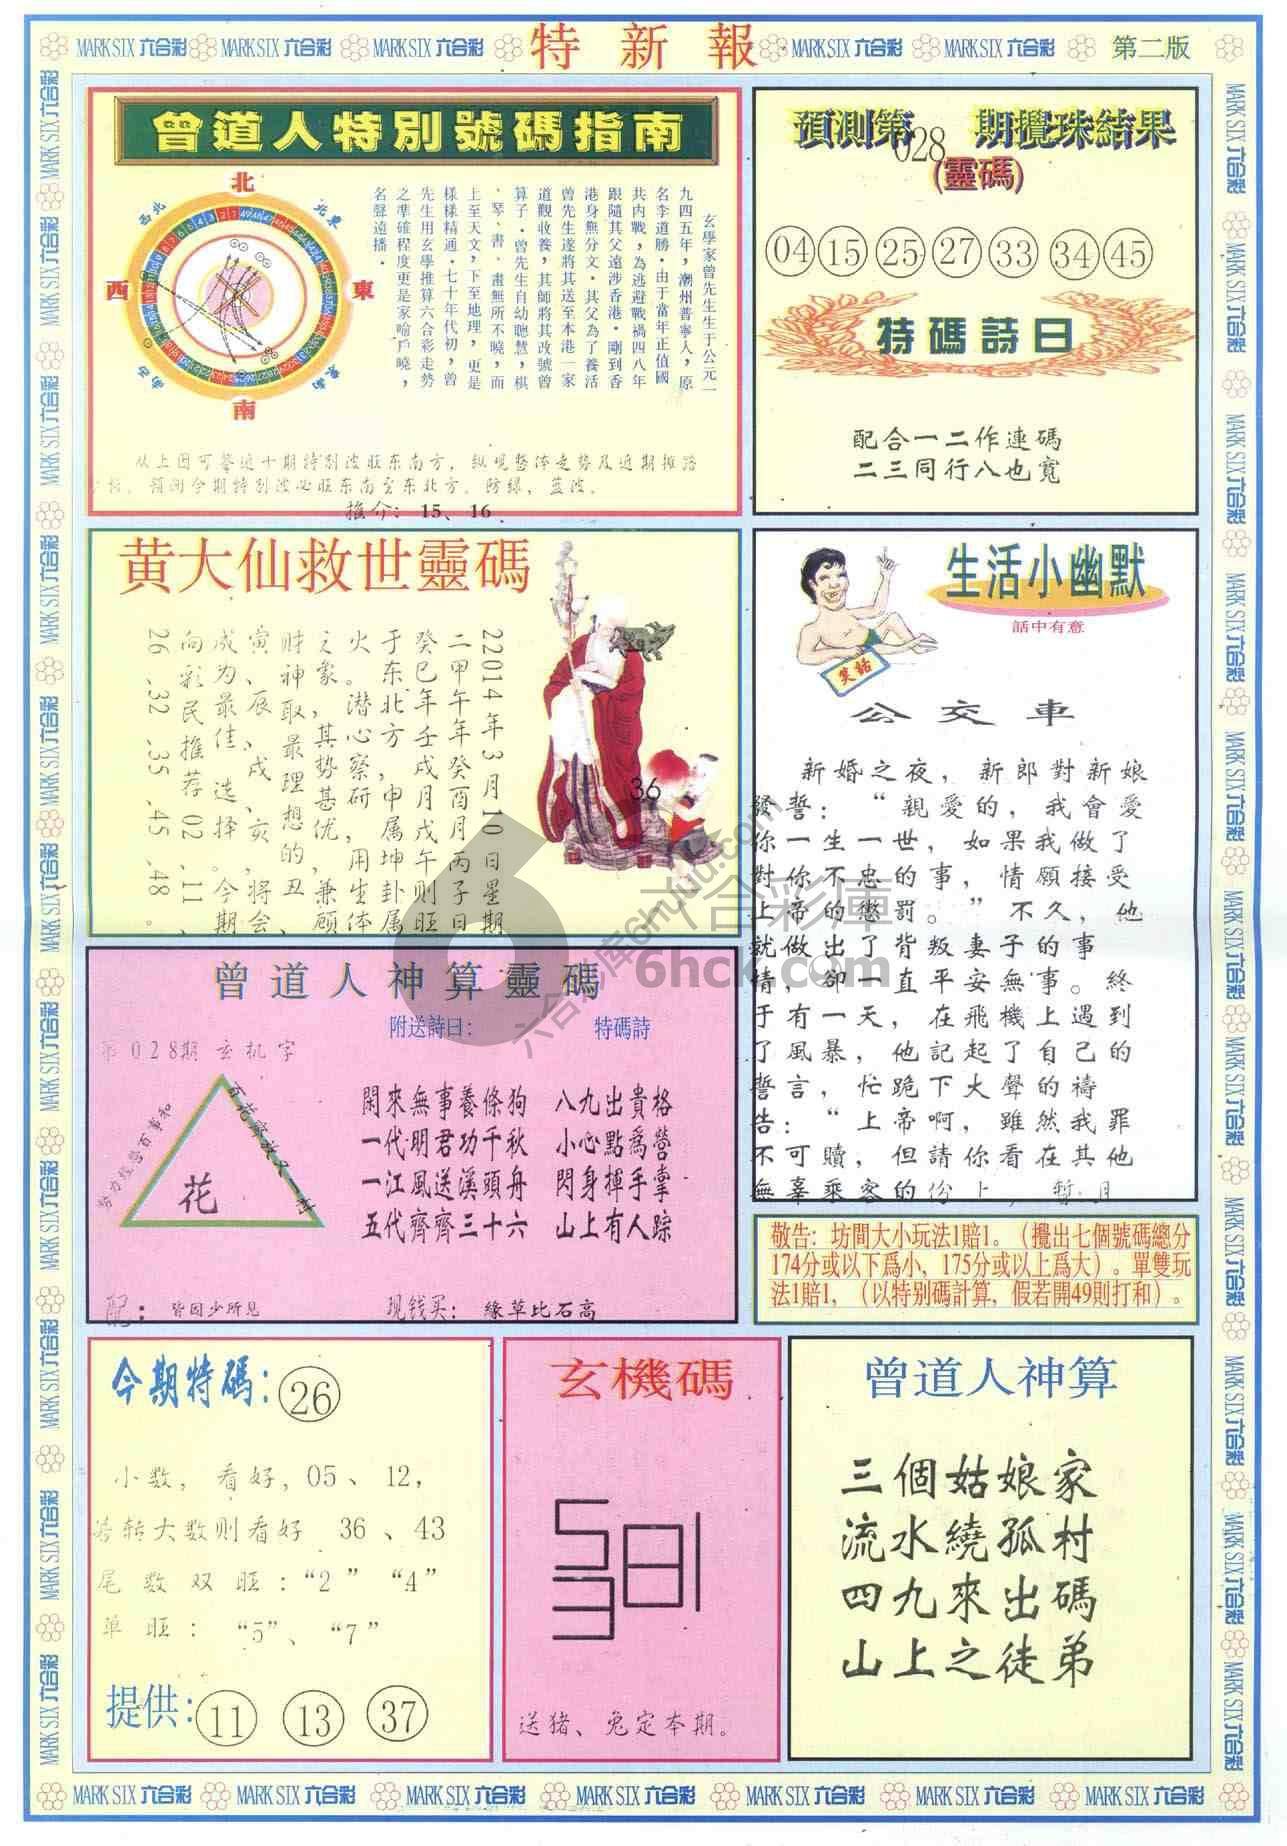 MARK SIX 六合彩 MARK SIX 六合彩 MARK SIX 六合彩 特新報 MARK SIX 六合彩 MARK SIX 六合彩 第二版
曾道人特別號碼指南
北
西北
北東
西
東
東南
南
玄學家曾先生生于公元一
九四五年，潮州普寧人，原
名李道勝·由于當年正值國
共內戰，為逃避戰禍四八年
跟隨其父遠涉香港·剛到香
港身無分文·其父為了養活
曾先生遂將其送至本港一家
道觀收養，其師將其改號曾
算子·曾先生自幼聰慧，棋
、琴、書、畫無所不曉，而
上至天文，下至地理，更是
樣樣精通·七十年代初，曾
先生用玄學推算六合彩走勢
之準確程度更是家喻戶曉，
名聲遠播·
从上图可鉴近十期特别波旺东南方，纵观整体走势及近期摊路
预测今期特别波必旺东南至东北方。防绿、蓝波。
推介：15、16
預測第028期攪珠結果
(靈碼)
04 15 25 27 33 34 45
特碼詩曰
配合一二作連碼
二三同行八也寬
黄大仙救世靈碼
22014年3月10日星期
二甲午年癸酉月丙子日
癸巳年壬戌月戌午则旺
于东北方，申属坤卦属
火。潜心察研，用生体
之象，其势甚优，兼顾
财神取最理想的丑、
寅、辰、戌、亥，将会
成为最佳选择。今期
向彩民推荐02、11、
26、32、35、45、48。
36
生活小幽默
話中有意
笑話
公交車
新婚之夜，新郎對新娘
發誓：“親愛的，我會愛
你一生一世，如果我做了
對你不忠的事，情願接受
上帝的懲罰。”不久，他
就做出了背叛妻子的事
情，卻一直平安無事。終
于有一天，在飛機上遇到
了風暴，他記起了自己的
誓言，忙跪下大聲的禱
告：“上帝啊，雖然我罪
不可贖，但請你看在其他
無辜乘客的份上，暫且
曾道人神算靈碼
附送詩曰：
特碼詩
第028期玄机字
努力經營百事和
花
開來無事養條狗
一代明君功千秋
一江風送溪頭舟
五代齊齊三十六
八九出貴格
小心點為營
閃身揮手掌
山上有人踪
配：皆因少所見
现钱买：緣草比石高
敬告：坊間大小玩法1賠1。（攪出七個號碼總分
174分或以下爲小，175分或以上爲大）。單雙玩
法1賠1，（以特别碼計算，假若開49則打和）。
今期特碼：26
小数，看好，05、12，
若转大数则看好 36、43
尾数双旺：“2”“4”
单旺：“5”、“7”
提供：11 13 37
玄機碼
送猪、兔定本期。
曾道人神算
三個姑娘家
流水繞孤村
四九來出碼
山上之徒弟
六合彩庫
6hck.com
MARK SIX 六合彩 MARK SIX 六合彩 MARK SIX 六合彩 MARK SIX 六合彩 MARK SIX 六合彩 MARK SIX 六合彩 MARK SIX 六合彩